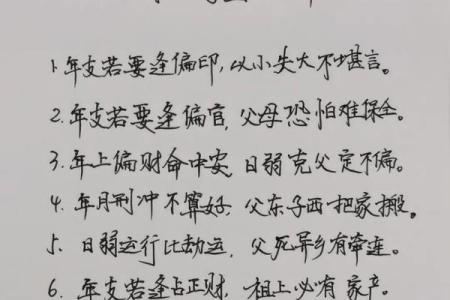 1.年支若要逢偏印,以小失大不堪言。
2.年支若要逢偏官,父母恐怕难保全。
3.年上偏财命中安,日弱克父定不偏。
4.年月刑冲不算好,父东子西把家搬。
5.日弱运行比劫运,父死异乡有牵连。
6.年支若逢占正财,祖上必有家产。